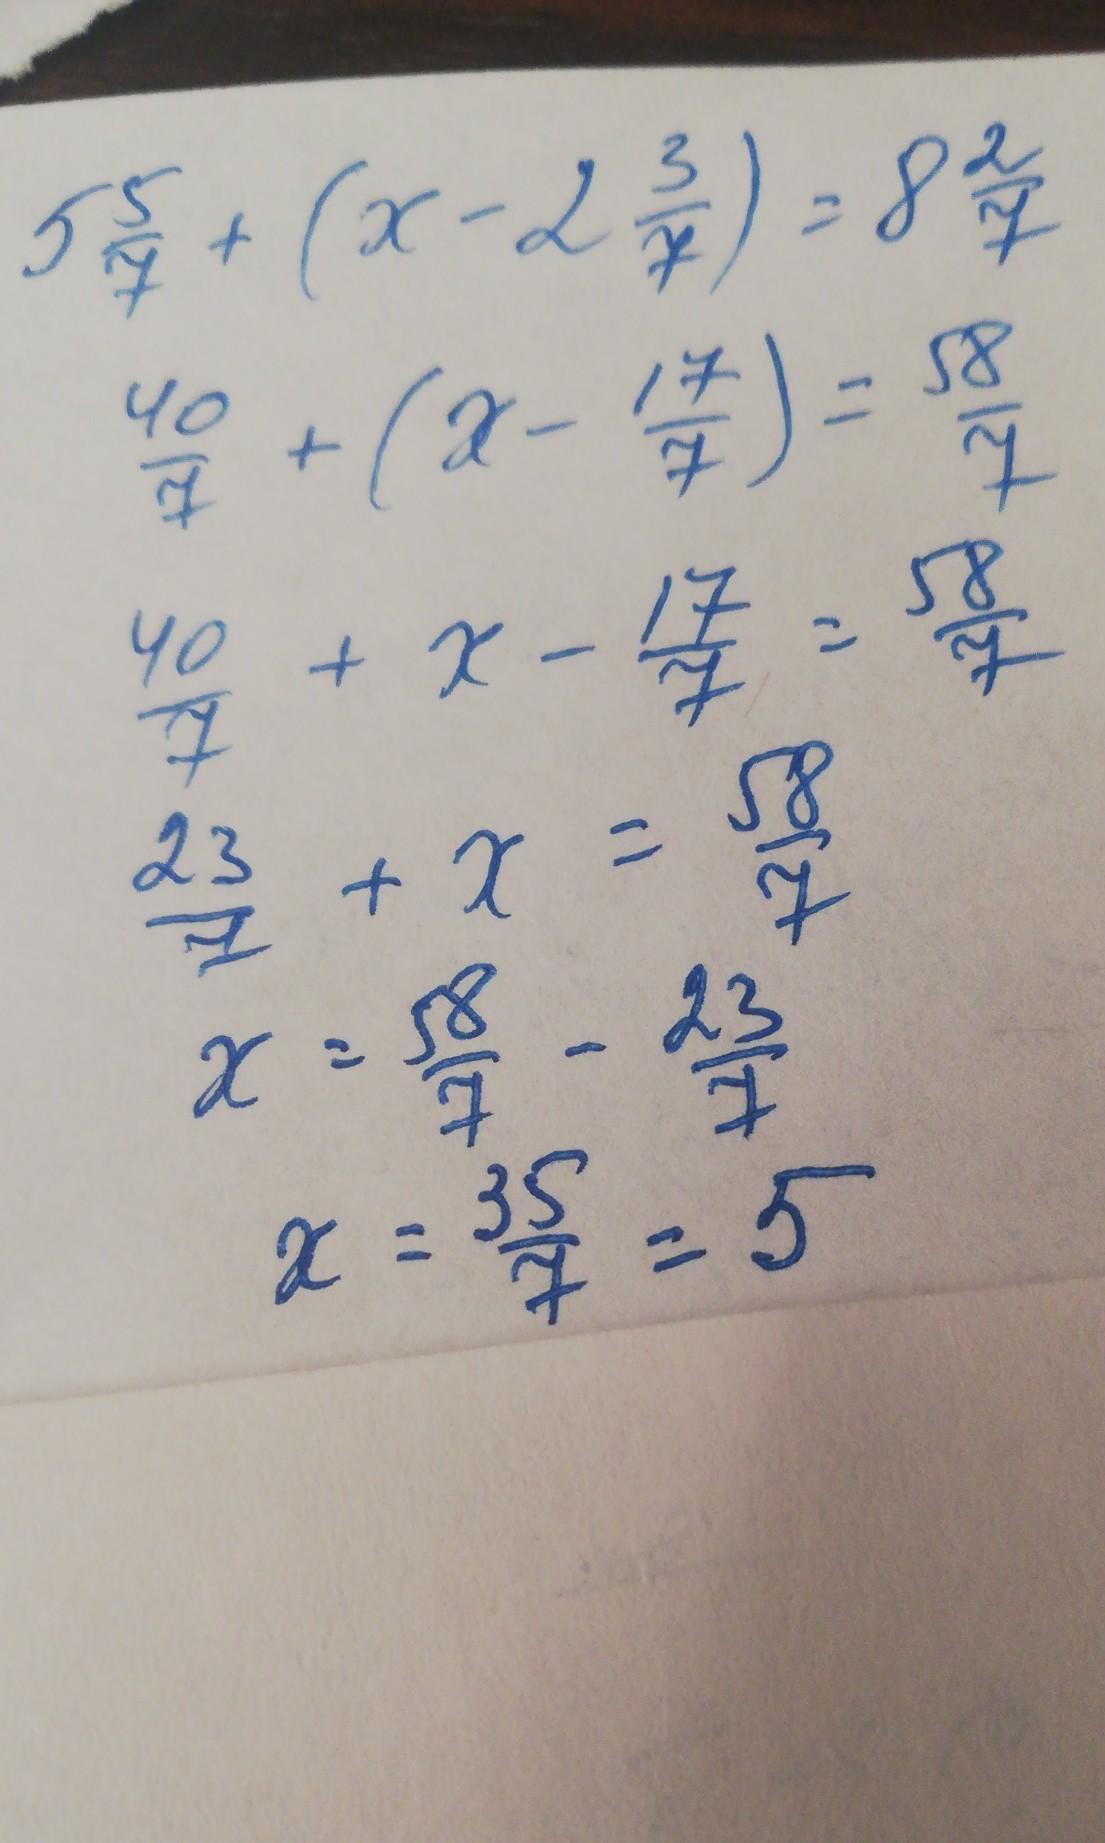 5 5/7 + (x - 2 3/7) = 8 2/7
40/7 + (x - 17/7) = 58/7
40/7 + x - 17/7 = 58/7
23/7 + x = 58/7
x = 58/7 - 23/7
x = 35/7 = 5